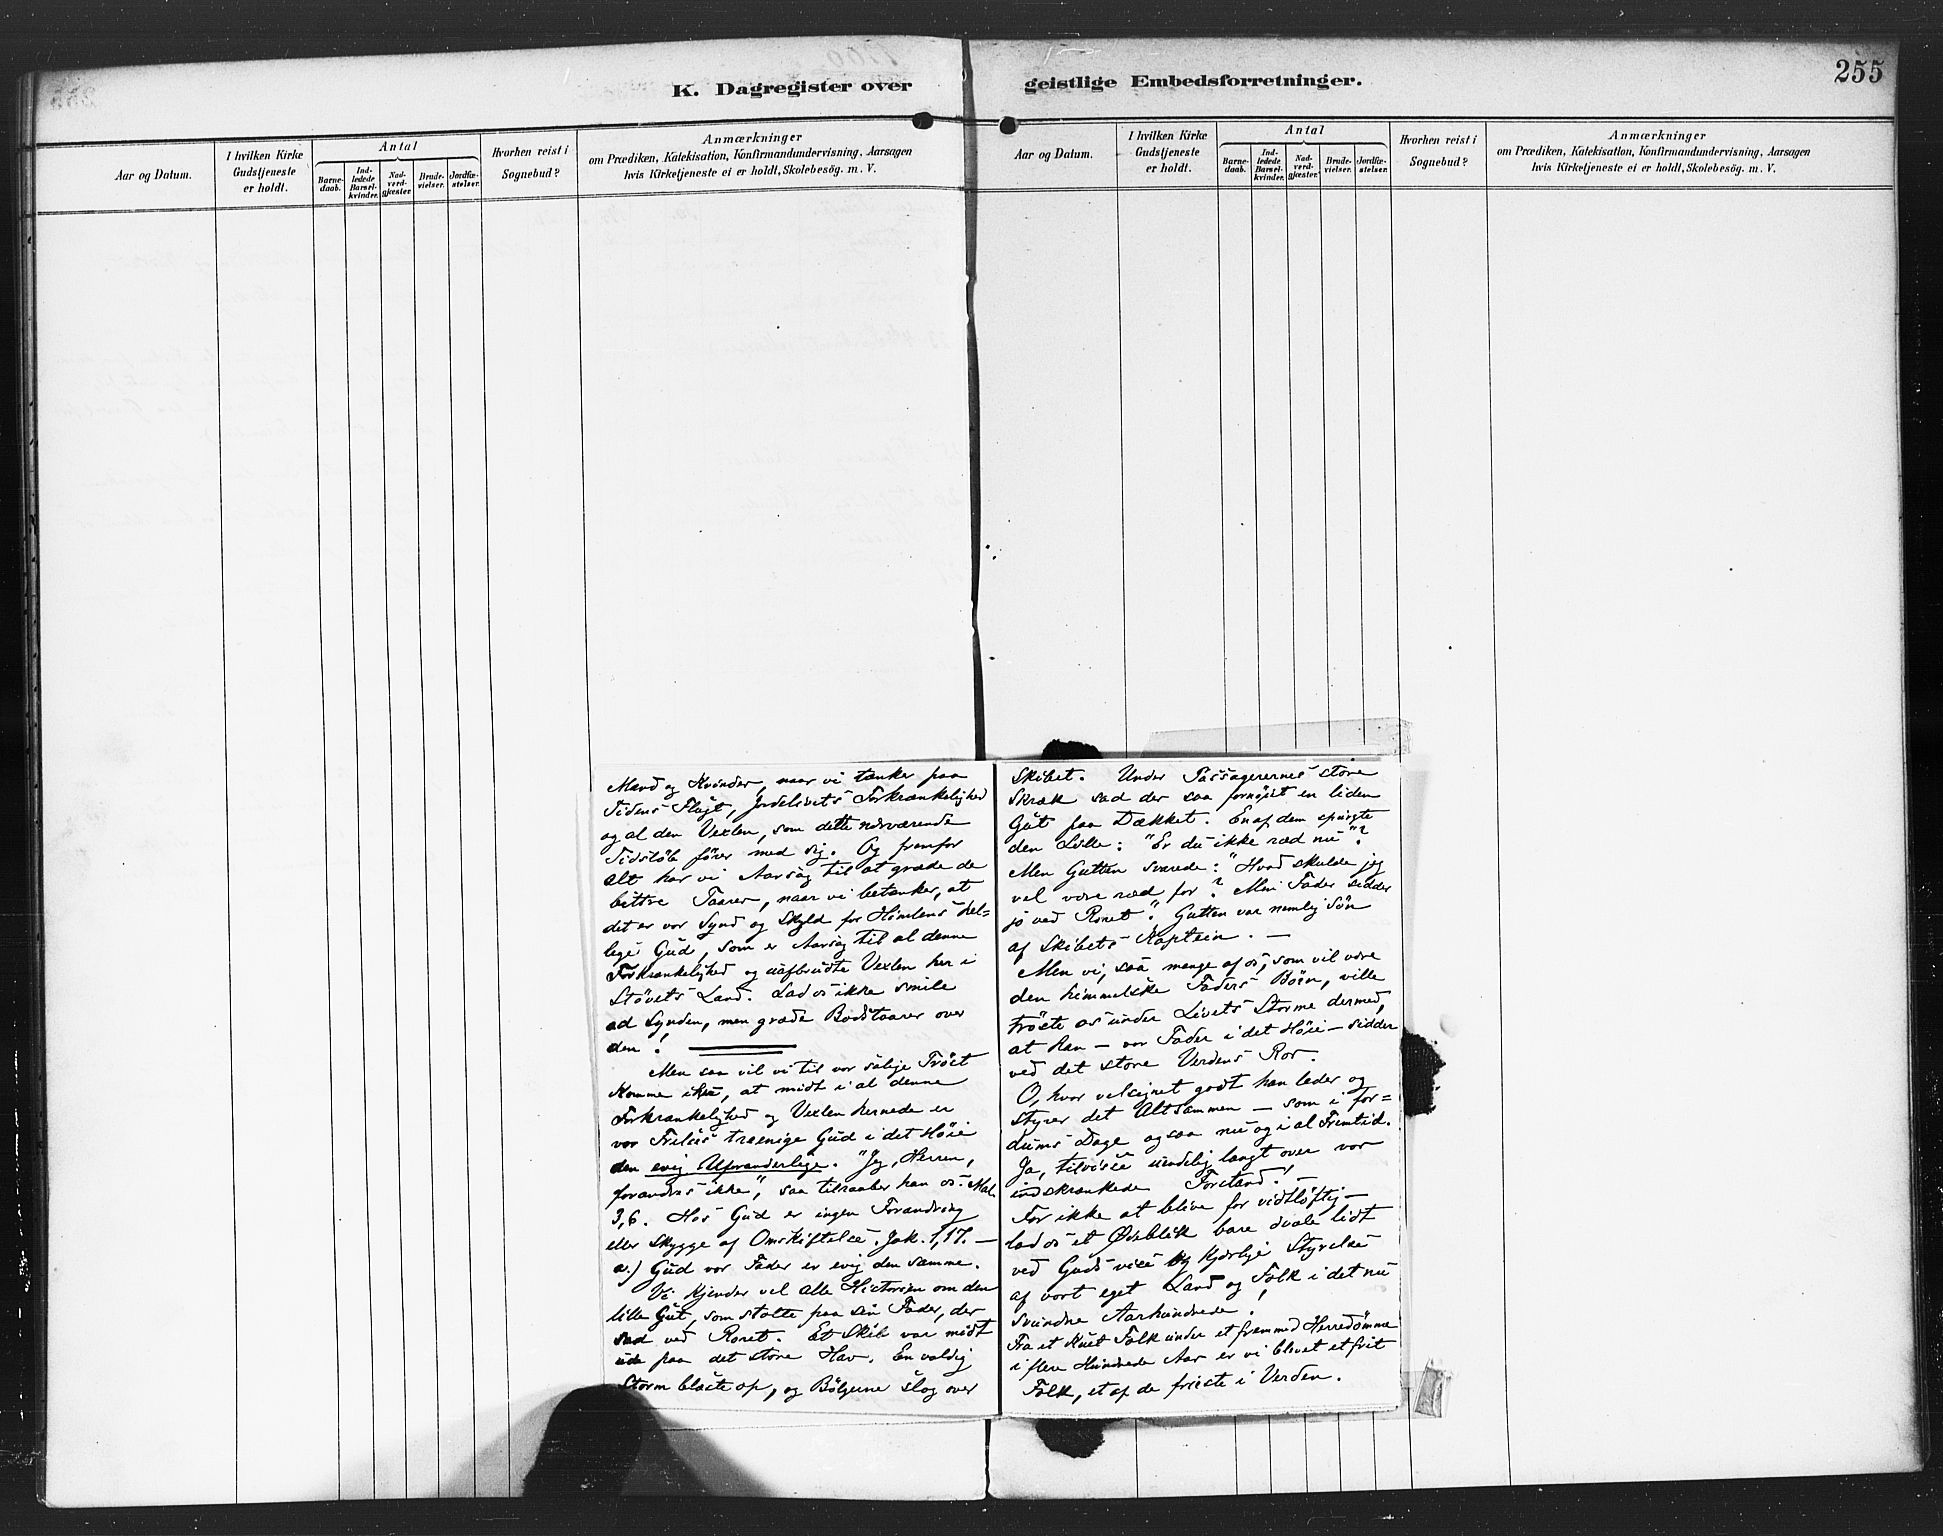 K. Dagregister over geistlige Embedsforretninger.
255
Aar og Datum.
I hvilken Kirke
Gudstjeneste
er holdt.
Antal
Barne-
daab.
Ind-
ledede
Barsel-
kvinder.
Nad-
verd-
gjæster.
Brude-
vielser.
Jordfæ-
stelser.
Hvorhen reist i
Sognebud?
Anmærkninger
om Prædiken, Katekisation, Konfirmandundervisning, Aarsagen
hvis Kirketjeneste ei er holdt, Skolebesøg. m. V.
Aar og Datum.
I hvilken Kirke
Gudstjeneste
er holdt.
Antal
Barne-
daab.
Ind-
ledede
Barsel-
kvinder.
Nad-
verd-
gjæster.
Brude-
vielser.
Jordfæ-
stelser.
Hvorhen reist i
Sognebud?
Anmærkninger
om Prædiken, Katekisation, Konfirmandundervisning, Aarsagen
hvis Kirketjeneste ei er holdt, Skolebesög. m. V.
Mænd og Kvinder, naar vi tænker paa
Tidens Flugt, Jordelivets Forkrænkelighed
og al den Vexlen, som dette nærværende
Tidsløb fører med sig. Og fremfor
alt har vi Aarsag til at græde de
bittre Taarer, naar vi betænker, at
det er vor Synd og Skyld for Himlens hel=
lige Gud, som er Aarsag til al denne
Forkrænkelighed og uafbrudte Vexlen her i
Støvets Land. Lad os ikke smile
ad Synden, men græde Bodstaarer over
den!
Men saa vil vi til vor salige Trøst
komme ihu, at midt i al denne
Forkrænkelighed og Vexlen hernede er
vor Frelses træenige Gud i det Høie
den evig Uforanderlige. "Jeg, Herren,
forandres ikke", saa tilraaber han os. Mal.
3,6. Hos Gud er ingen Forandring
eller Skygge af Omskiftelse. Jak. 1,17. —
a.) Gud vor Fader er evig den samme.
Vi kjender vel alle Historien om den
lille Gut, som stolte paa sin Fader, der
sad ved Roret. Et Skib var midt
ude paa det store Hav. En vældig
Storm blæste op, og Bølgerne slog over
Skibet. Under Passagerernes store
Skræk sad der saa fornøiet en liden
Gut paa Dækket. En af dem spurgte
den Lille: "Er du ikke ræd nu"?
Men Gutten svarede: "Hvad skulde jeg
vel være ræd for? Min Fader sidder
jo ved Roret". Gutten var nemlig Søn
af Skibets Kaptein. —
Men vi, saa mange af os, som vil være
den himmelske Faders Børn, ville
trøste os under Livets Storme dermed,
at Han — vor Fader i det Høie — sidder
ved det store Verdens Ror.
O, hvor velsignet godt han leder og
styrer det Altsammen — som i for=
dums Dage ogsaa nu og i al Fremtid.
Ja, tilvisse uendelig langt over vor
indskrænkede Forstand! —
For ikke at blive for vidtløftig —
lad os et Øieblik bare dvæle lidt
ved Guds vise og kjærlige Styrelse
af vort eget Land og Folk i det nu
svundne Aarhundrede!
Fra et kuet Folk under et fremmed Herredømme
i flere Hundrede Aar er vi blevet et frit
Folk, et af de frieste i Verden.